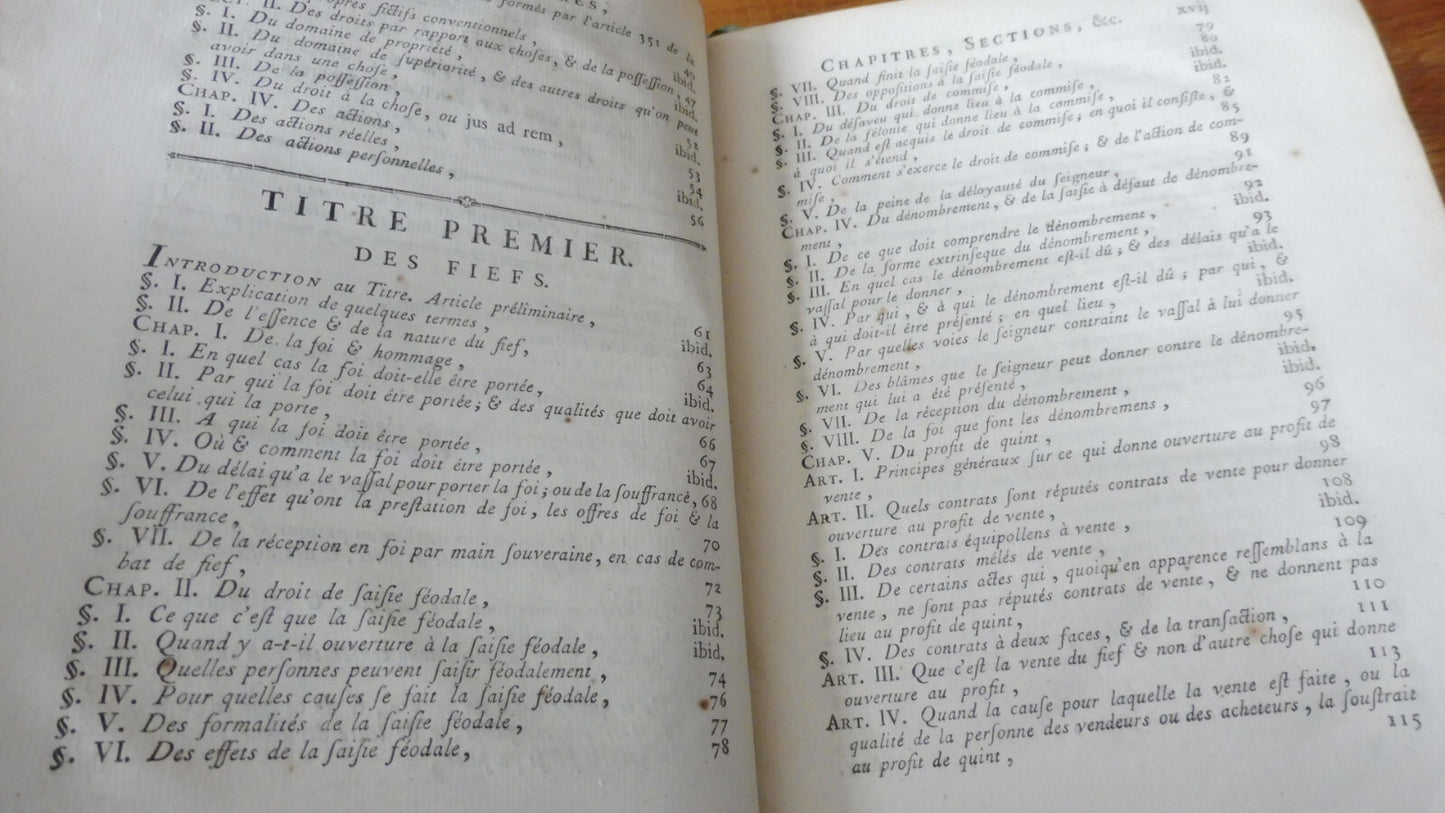 formés par l'article 351 de la
propres fictifs conventionnels, 40
II. Des droits par rapport aux choſes, & de la poſſeſſion, ibid.
§. I. Du domaine de propriété, 47
§. II. Du domaine de ſupériorité, & des autres droits qu'on peut
avoir dans une choſe, ibid.
§. III. De la poſſeſſion, 52
§. IV. Du droit à la choſe, ou jus ad rem, ibid.
CHAP. IV. Des actions, 53
§. I. Des actions réelles, 54
§. II. Des actions perſonnelles, ibid.
56
TITRE PREMIER.
DES FIEFS.
INTRODUCTION au Titre. Article préliminaire, 61
§. I. Explication de quelques termes, ibid.
§. II. De l'eſſence & de la nature du fief, 63
CHAP. I. De la foi & hommage, 64
§. I. En quel cas la foi doit-elle être portée, ibid.
§. II. Par qui la foi doit être portée; & des qualités que doit avoir
celui qui la porte, 66
§. III. A qui la foi doit être portée, 67
§. IV. Où & comment la foi doit être portée, ibid.
§. V. Du délai qu'a le vaſſal pour porter la foi; ou de la ſouffrance, 68
§. VI. De l'effet qu'ont la preſtation de foi, les offres de foi & la
ſouffrance, 70
§. VII. De la réception en foi par main ſouveraine, en cas de com-
bat de fief, 72
CHAP. II. Du droit de ſaiſie féodale, 73
§. I. Ce que c'eſt que la ſaiſie féodale, ibid.
§. II. Quand y a-t-il ouverture à la ſaiſie féodale, ibid.
§. III. Quelles perſonnes peuvent ſaiſir féodalement, 74
§. IV. Pour quelles cauſes ſe fait la ſaiſie féodale, 76
§. V. Des formalités de la ſaiſie féodale, 77
§. VI. Des effets de la ſaiſie féodale, 78
CHAPITRES, SECTIONS, &c. xvij
§. VII. Quand finit la ſaiſie féodale, 79
§. VIII. Des oppoſitions à la ſaiſie féodale, 80
CHAP. III. Du droit de commiſe, ibid.
§. I. Du déſaveu qui donne lieu à la commiſe, ibid.
§. II. De la félonie qui donne lieu à la commiſe, 82
§. III. Quand eſt acquis le droit de commiſe; en quoi il conſiſte, &
à quoi il s'étend, 85
§. IV. Comment s'exerce le droit de commiſe; & de l'action de com-
miſe, 89
§. V. De la peine de la déloyauté du ſeigneur, 91
CHAP. IV. Du dénombrement, & de la ſaiſie à défaut de dénombre-
ment, 92
§. I. De ce que doit comprendre le dénombrement, ibid.
§. II. De la forme extrinſeque du dénombrement, 93
§. III. En quel cas le dénombrement eſt-il dû; & des délais qu'a le
vaſſal pour le donner, ibid.
§. IV. Par qui, & à qui le dénombrement eſt-il dû; par qui, &
à qui doit-il être préſenté; en quel lieu, ibid.
§. V. Par quelles voies le ſeigneur contraint le vaſſal à lui donner
dénombrement, 95
§. VI. Des blâmes que le ſeigneur peut donner contre le dénombre-
ment qui lui a été préſenté, ibid.
§. VII. De la réception du dénombrement, ibid.
§. VIII. De la foi que font les dénombremens, 96
CHAP. V. Du profit de quint, 97
ART. I. Principes généraux ſur ce qui donne ouverture au profit de
vente, 98
ART. II. Quels contrats ſont réputés contrats de vente pour donner
ouverture au profit de vente, 108
§. I. Des contrats équipollens à vente, ibid.
§. II. Des contrats mêlés de vente, 109
§. III. De certains actes qui, quoiqu'en apparence reſſemblans à la
vente, ne ſont pas réputés contrats de vente, & ne donnent pas
lieu au profit de quint, 110
§. IV. Des contrats à deux faces, & de la tranſaction, 111
ART. III. Que c'eſt la vente du fief & non d'autre choſe qui donne
ouverture au profit, 113
ART. IV. Quand la cauſe pour laquelle la vente eſt faite, ou la
qualité de la perſonne des vendeurs ou des acheteurs, la ſouſtrait
au profit de quint, 115